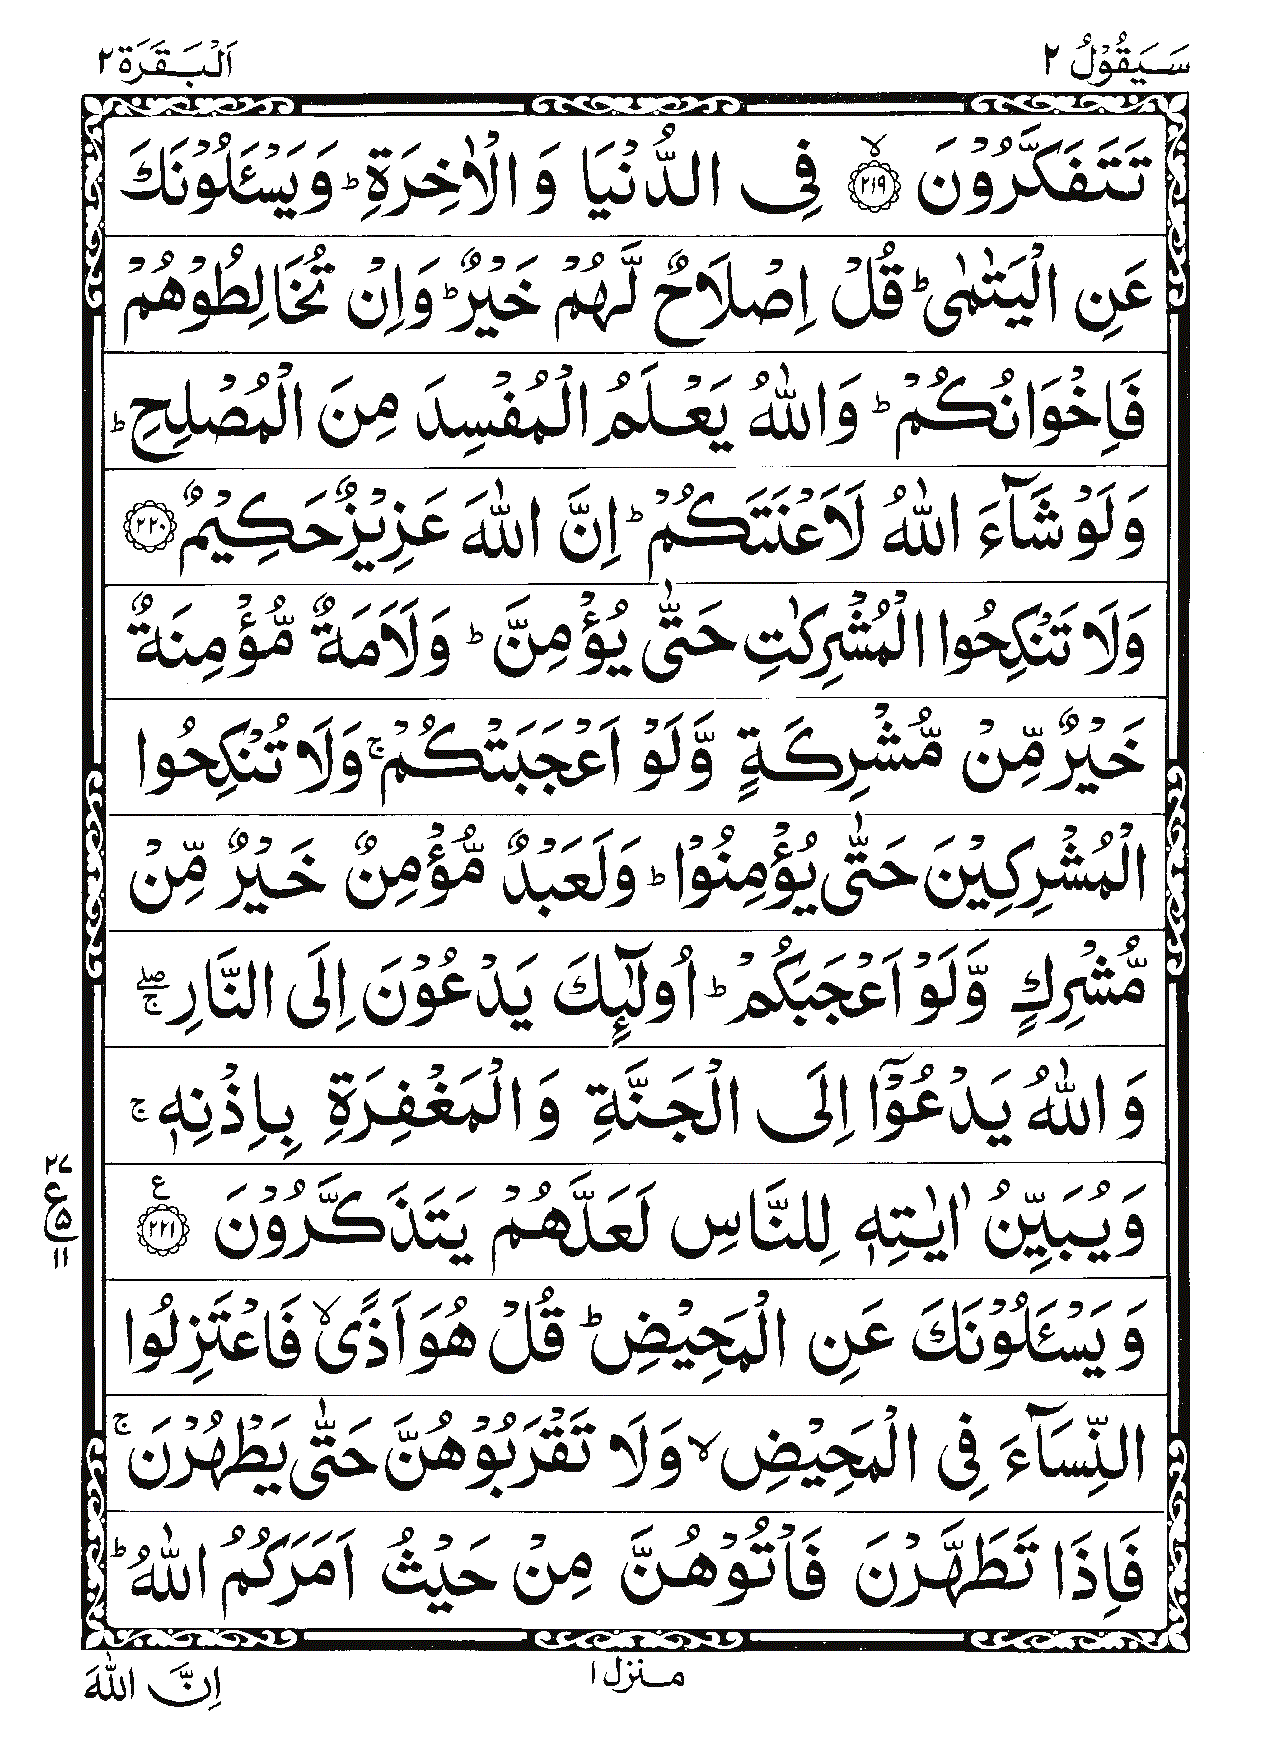 سَيَقُوْلُ ٢
اَلْبَقَرَة ٢
تَتَفَكَّرُوْنَ ۙ﴿۲۱۹﴾ فِى الدُّنْيَا وَ الْاٰخِرَةِ ؕ وَيَسْـَٔلُوْنَكَ
عَنِ الْيَتٰمٰى ؕ قُلْ اِصْلَاحٌ لَّهُمْ خَيْرٌ ؕ وَاِنْ تُخَالِطُوْهُمْ
فَاِخْوَانُكُمْ ؕ وَاللّٰهُ يَعْلَمُ الْمُفْسِدَ مِنَ الْمُصْلِحِ ؕ
وَلَوْ شَآءَ اللّٰهُ لَاَعْنَتَكُمْ ؕ اِنَّ اللّٰهَ عَزِيْزٌ حَكِيْمٌ ﴿۲۲۰﴾
وَلَا تَنْكِحُوا الْمُشْرِكٰتِ حَتّٰى يُؤْمِنَّ ؕ وَلَاَمَةٌ مُّؤْمِنَةٌ
خَيْرٌ مِّنْ مُّشْرِكَةٍ وَّلَوْ اَعْجَبَتْكُمْ ۚ وَلَا تُنْكِحُوا
الْمُشْرِكِيْنَ حَتّٰى يُؤْمِنُوْا ؕ وَلَعَبْدٌ مُّؤْمِنٌ خَيْرٌ مِّنْ
مُّشْرِكٍ وَّلَوْ اَعْجَبَكُمْ ؕ اُولٰٓئِكَ يَدْعُوْنَ اِلَى النَّارِ ۖۚ
وَ اللّٰهُ يَدْعُوْٓا اِلَى الْجَنَّةِ وَ الْمَغْفِرَةِ بِاِذْنِهٖ ۚ
وَيُبَيِّنُ اٰيٰتِهٖ لِلنَّاسِ لَعَلَّهُمْ يَتَذَكَّرُوْنَ ﴿۲۲۱﴾ ع
۲۷
ع
۵
۱۱
وَ يَسْـَٔلُوْنَكَ عَنِ الْمَحِيْضِ ؕ قُلْ هُوَ اَذًى ۙ فَاعْتَزِلُوا
النِّسَآءَ فِى الْمَحِيْضِ ۙ وَلَا تَقْرَبُوْهُنَّ حَتّٰى يَطْهُرْنَ ۚ
فَاِذَا تَطَهَّرْنَ فَاْتُوْهُنَّ مِنْ حَيْثُ اَمَرَكُمُ اللّٰهُ ؕ
منزل ۱
اِنَّ اللّٰهَ